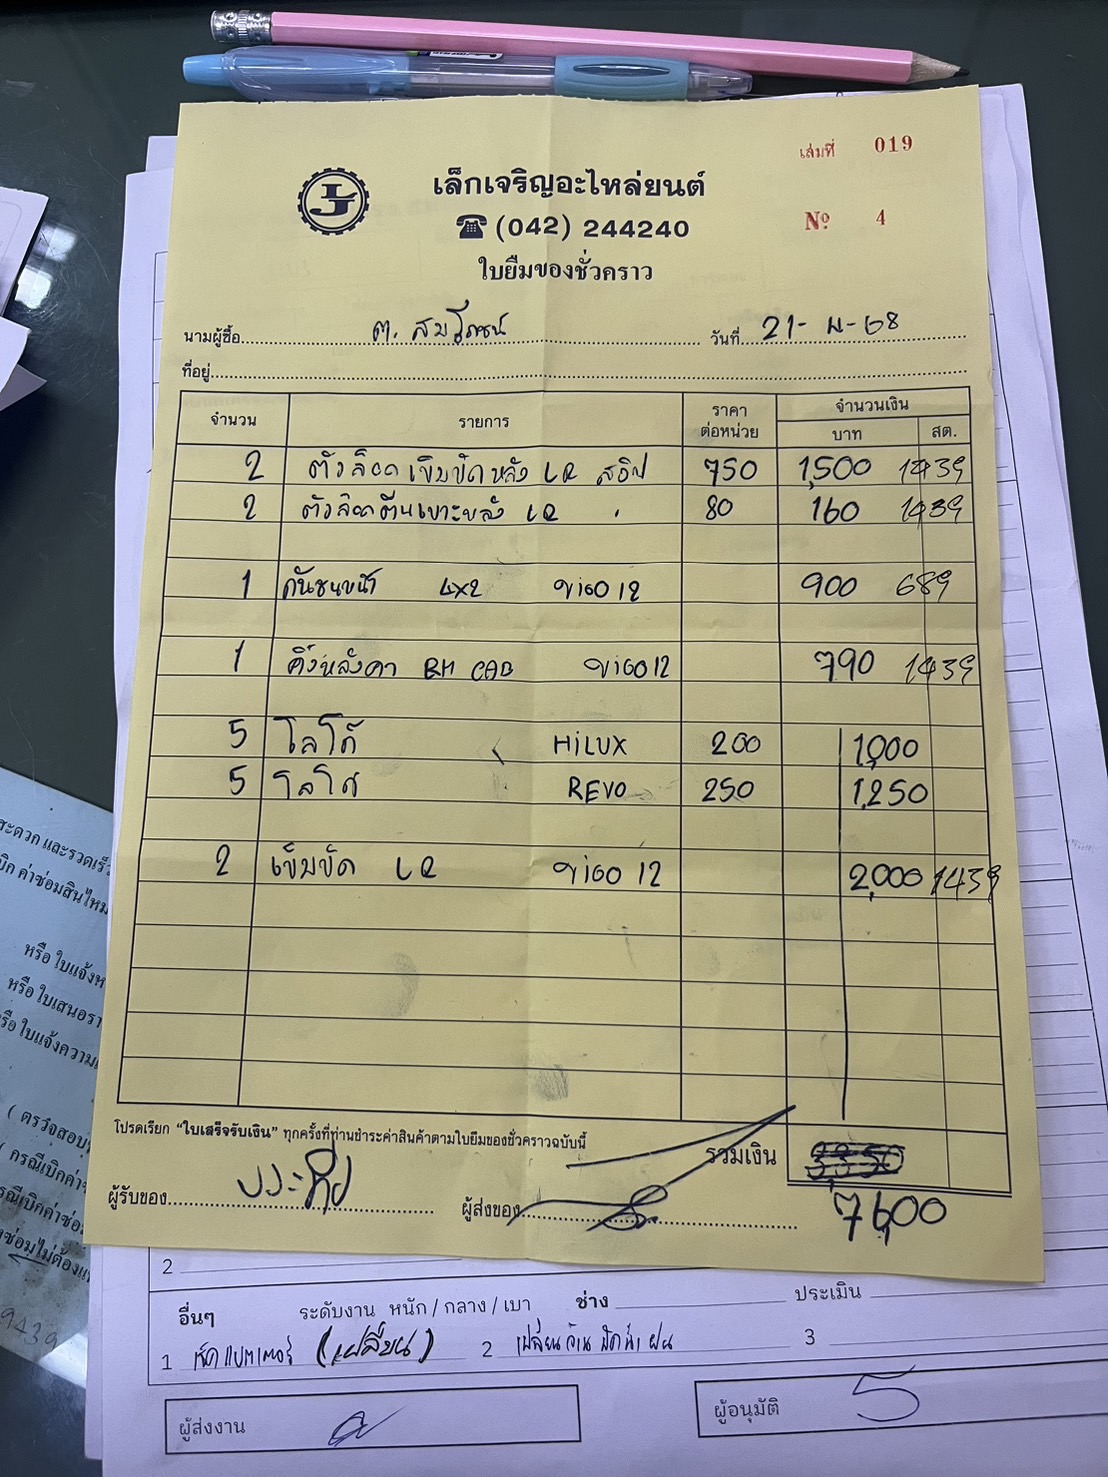 เล่มที่ 019
เล็กเจริญอะไหล่ยนต์
(042) 244240
Nº 4
ใบยืมของชั่วคราว
นามผู้ซื้อ วันที่ 21- -68
ที่อยู่
จำนวน รายการ ราคาต่อหน่วย จำนวนเงิน บาท สต.
2 ตัวล็อคเข็มขัดหลัง LR 750 1,500 1439
2 ตัวล็อค LR 80 160 1439
1 กันชนหน้า 4x2 VIGO 12 900 689
1 คิ้วหลังคา RH CAB VIGO 12 790 1439
5 โลโก้ HILUX 200 1,000
5 โลโก้ REVO 250 1,250
2 เข็มขัด LR VIGO 12 2,000 1439
โปรดเรียก "ใบเสร็จรับเงิน" ทุกครั้งที่ท่านชำระค่าสินค้าตามใบยืมของชั่วคราวฉบับนี้
รวมเงิน 3,350
ผู้รับของ ผู้ส่งของ 7,600
2
อื่นๆ ระดับงาน หนัก / กลาง / เบา ช่าง ประเมิน
1 (เปลี่ยน) 2 เปลี่ยน 3
ผู้ส่งงาน ผู้อนุมัติ
สะดวก และรวดเร็ว
เบิก ค่าซ่อมสินไหม
หรือ ใบแจ้งห
หรือ ใบเสนอรา
รือ ใบแจ้งความ
( ตรวจสอบ
( กรณีเบิกค่า
รณีเบิกค่าซ่อ
ซ่อมไม่ต้อง
9439